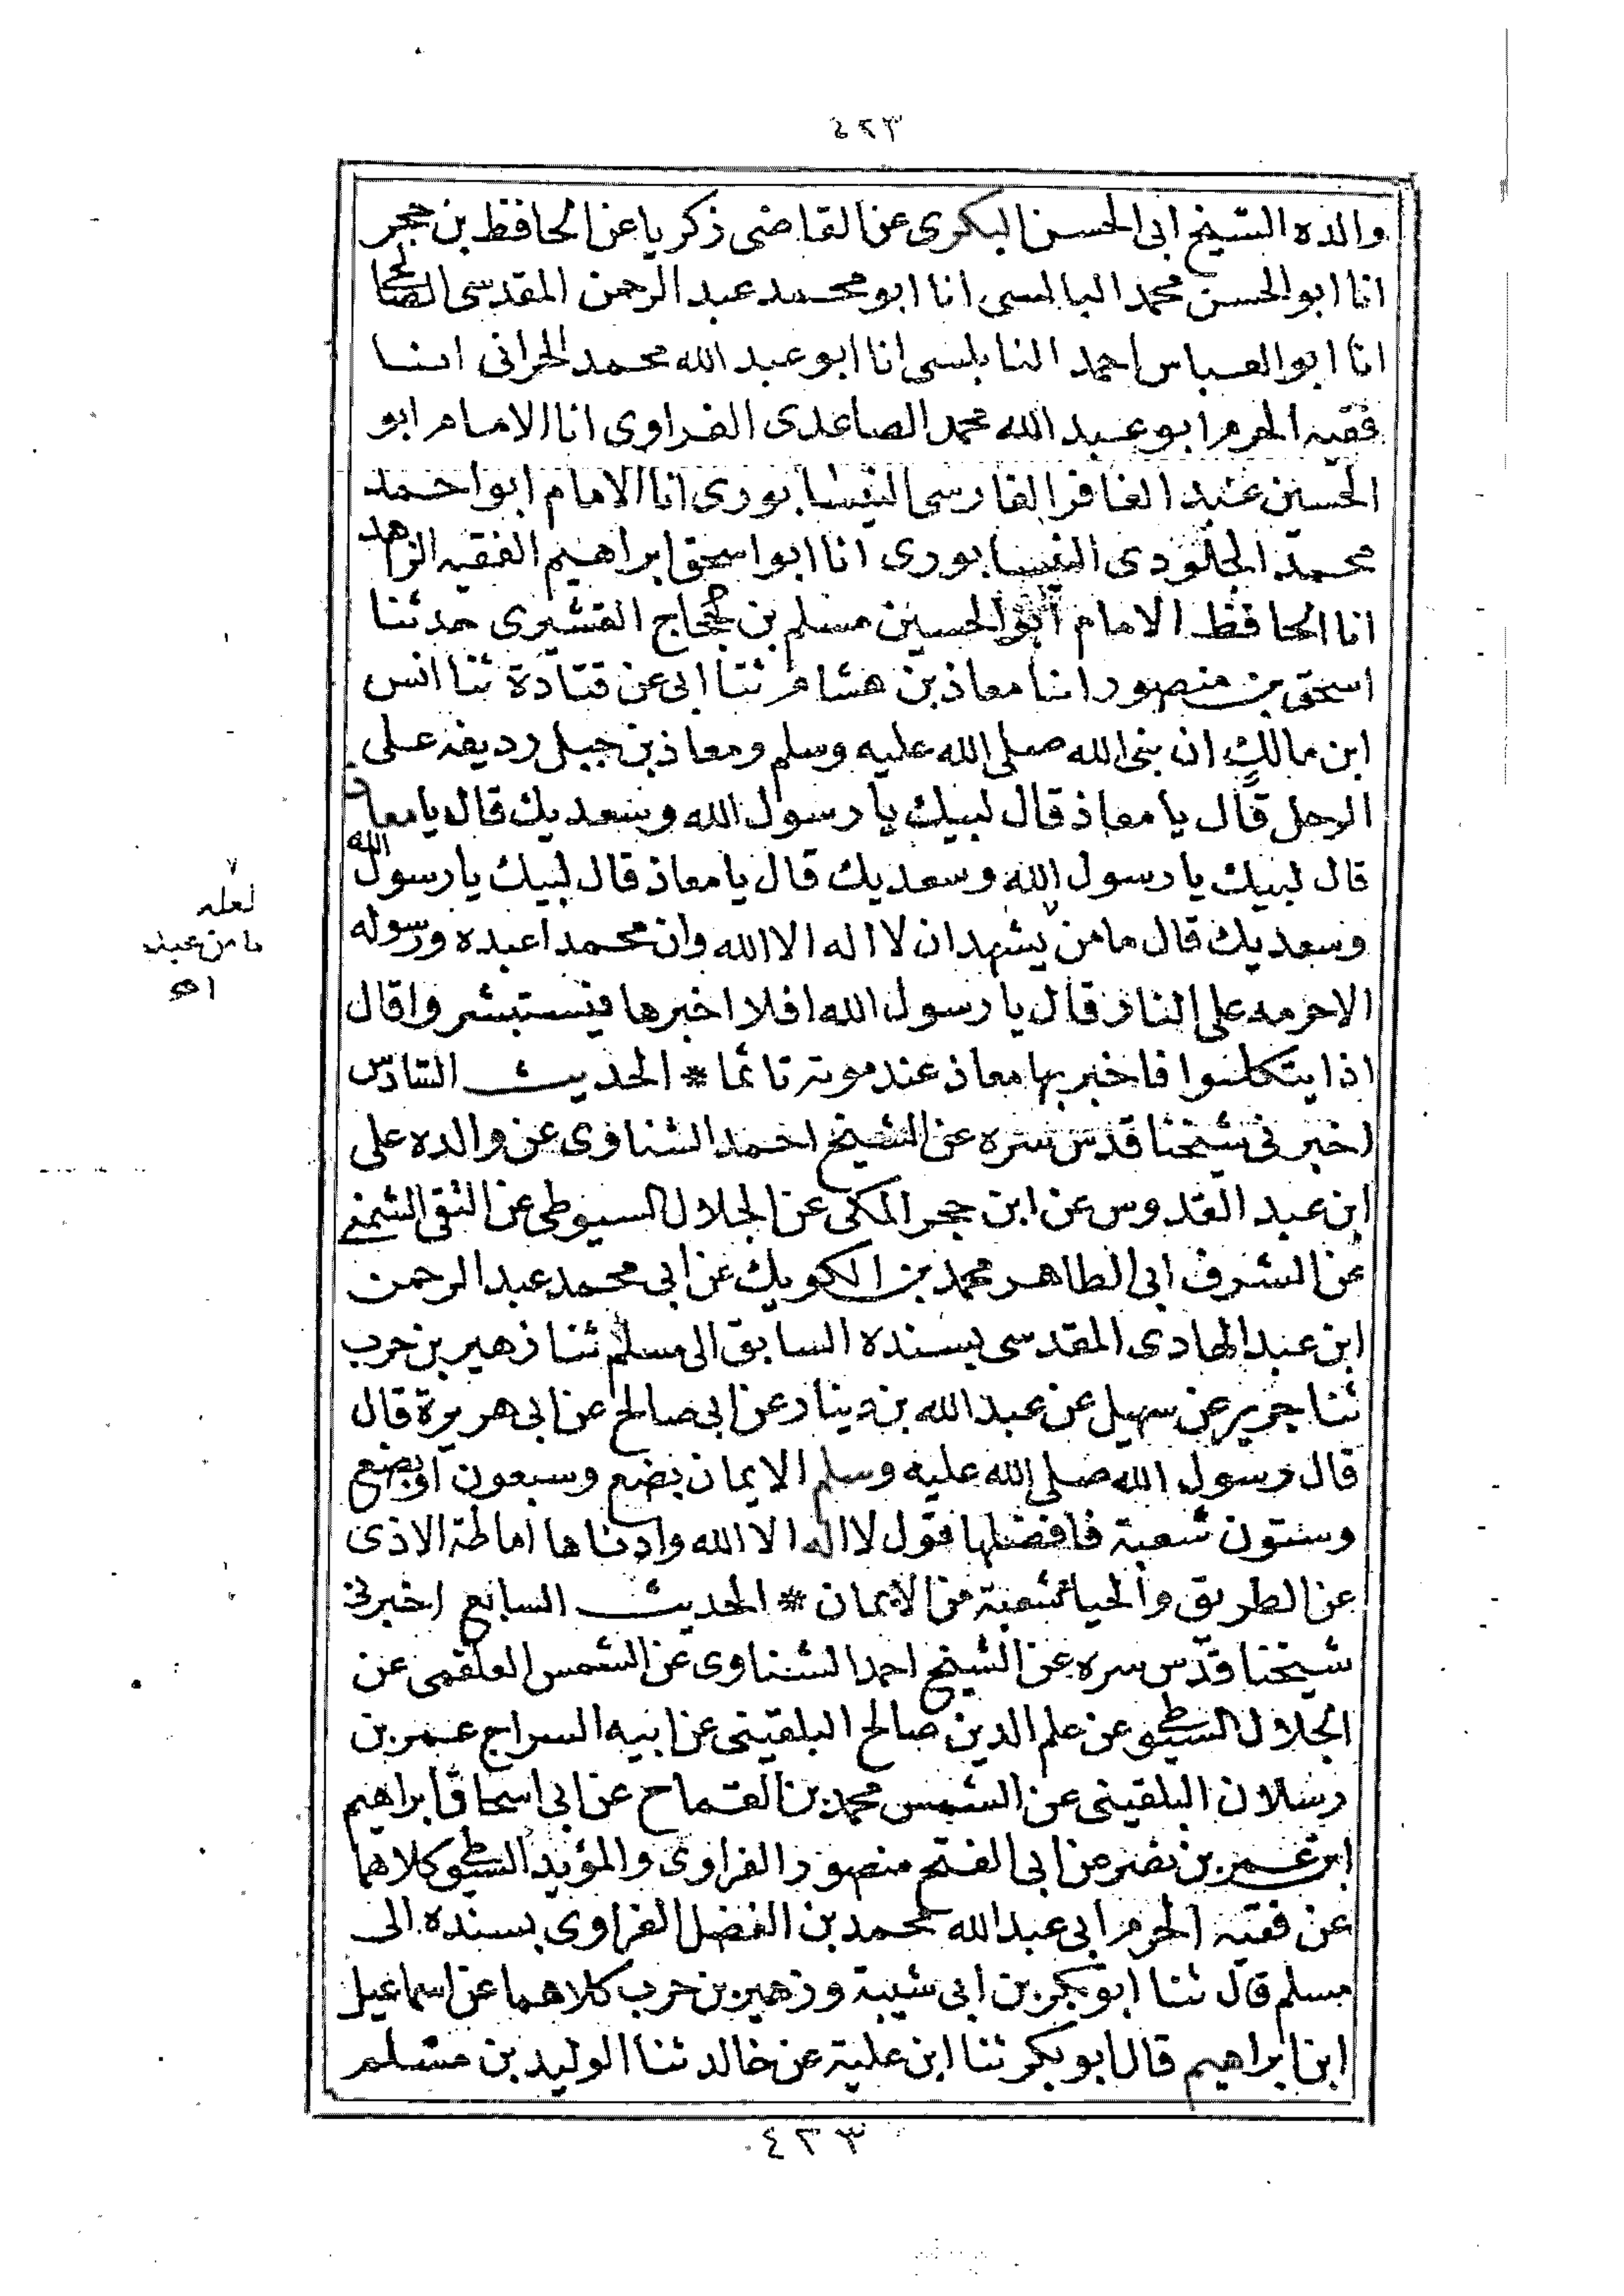 ٤٢٣
والده الشيخ ابى الحسن البكرى عن القاضى زكريا عن الحافظ بن حجر
انا ابو الحسن محمد البالسى انا ابو محمد عبد الرحمن المقدسى الصالحى
انا ابو العباس احمد النابلسى انا ابو عبد الله محمد الحرانى انبا
فقيه الحرم ابو عبد الله محمد الصاعدى الفراوى انا الامام ابو
الحسين عبد الغافر الفارسى النيسابورى انا الامام ابو احمد
محمد الجلودى النيسابورى انا ابو اسحق ابراهيم الفقيه الزاهد
انا الحافظ الامام ابو الحسين مسلم بن حجاج القشيرى حدثنا
اسحق بن منصور انا معاذ بن هشام ثنا ابى عن قتادة ثنا انس
ابن مالك ان نبى الله صلى الله عليه وسلم ومعاذ بن جبل رديفه على
الرحل قال يا معاذ قال لبيك يا رسول الله وسعديك قال يا معاذ
قال لبيك يا رسول الله وسعديك قال يا معاذ قال لبيك يا رسول الله
وسعديك قال ما من ٧ يشهد ان لا اله الا الله وان محمدا عبده ورسوله
الا حرمه على النار قال يا رسول الله افلا اخبرها فيستبشروا قال
اذا يتكلوا فاخبر بها معاذ عند موته تاثما * الحديث السادس
اخبرنى شيخنا قدس سره عن الشيخ احمد الشناوى عن والده على
ابن عبد القدوس عن ابن حجر المكى عن الجلال السيوطى عن التقى الشمنى
عن الشرف ابى الطاهر محمد بن الكويك عن ابى محمد عبد الرحمن
ابن عبد الهادى المقدسى بسنده السابق الى مسلم ثنا زهير بن حرب
ثنا جرير عن سهيل عن عبد الله بن دينار عن ابى صالح عن ابى هريرة قال
قال رسول الله صلى الله عليه وسلم الايمان بضع وسبعون او بضع
وستون شعبة فافضلها قول لا اله الا الله وادناها اماطة الاذى
عن الطريق والحياء شعبة من الايمان * الحديث السابع اخبرنى
شيخنا قدس سره عن الشيخ احمد الشناوى عن الشمس العلقمى عن
الجلال السيوطى عن علم الدين صالح البلقينى عن ابيه السراج عمر بن
رسلان البلقينى عن الشمس محمد بن القماح عن ابى اسحاق ابراهيم
ابن عمر بن نصر عن ابى الفتح منصور الفراوى والمؤيد كلاهما
عن فقيه الحرم ابى عبد الله محمد بن الفضل الفراوى بسنده الى
مسلم قال ثنا ابو بكر بن ابى شيبة وزهير بن حرب كلاهما عن اسماعيل
ابن ابراهيم قال ابو بكر ثنا ابن علية عن خالد ثنا الوليد بن مسلم
٧
لعله
ما من عبد
اھ
٤٢٣